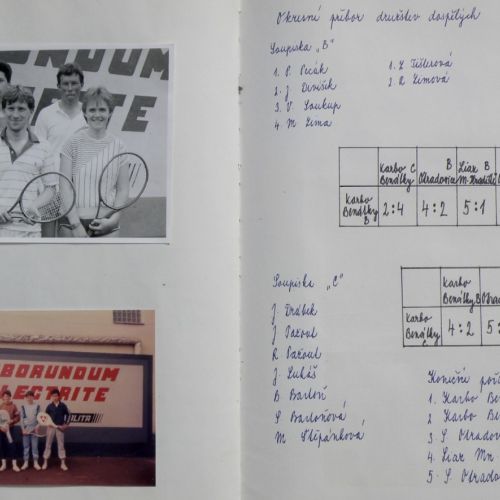 ORUNDUM
TRITE
BORUNDUM
LECTRITE
Okresní přebor družstev dospělých
Soupiska „B"
1. P. Pecák
2. J. Divíšek
3. V. Soukup
4. M. Zima
1. L. Tiślerová
2. R. Zimová
Karbo C Benátky
B Otradovice
Liaz B M. Hradiště
Karbo Benátky B
2:4
4:2
5:1
Soupiska „C"
J. Drábek
J. Pažout
R. Pažout
J. Lukáš
B. Bartoň
S. Bartoňová
M. Štěpánková
Karbo Benátky B
Karbo Benátky
4:2
Konečné poř
1. Karbo Be
2 Karbo Be
3. S. Otradov
4. Liaz Mn
5. S. Otrado